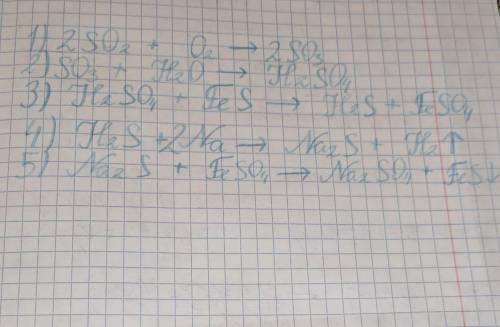 1) 2SO₂ + O₂ → 2SO₃
2) SO₃ + H₂O → H₂SO₄
3) H₂SO₄ + FeS → H₂S + FeSO₄
4) H₂S + 2Na → Na₂S + H₂↑
5) Na₂S + FeSO₄ → Na₂SO₄ + FeS↓